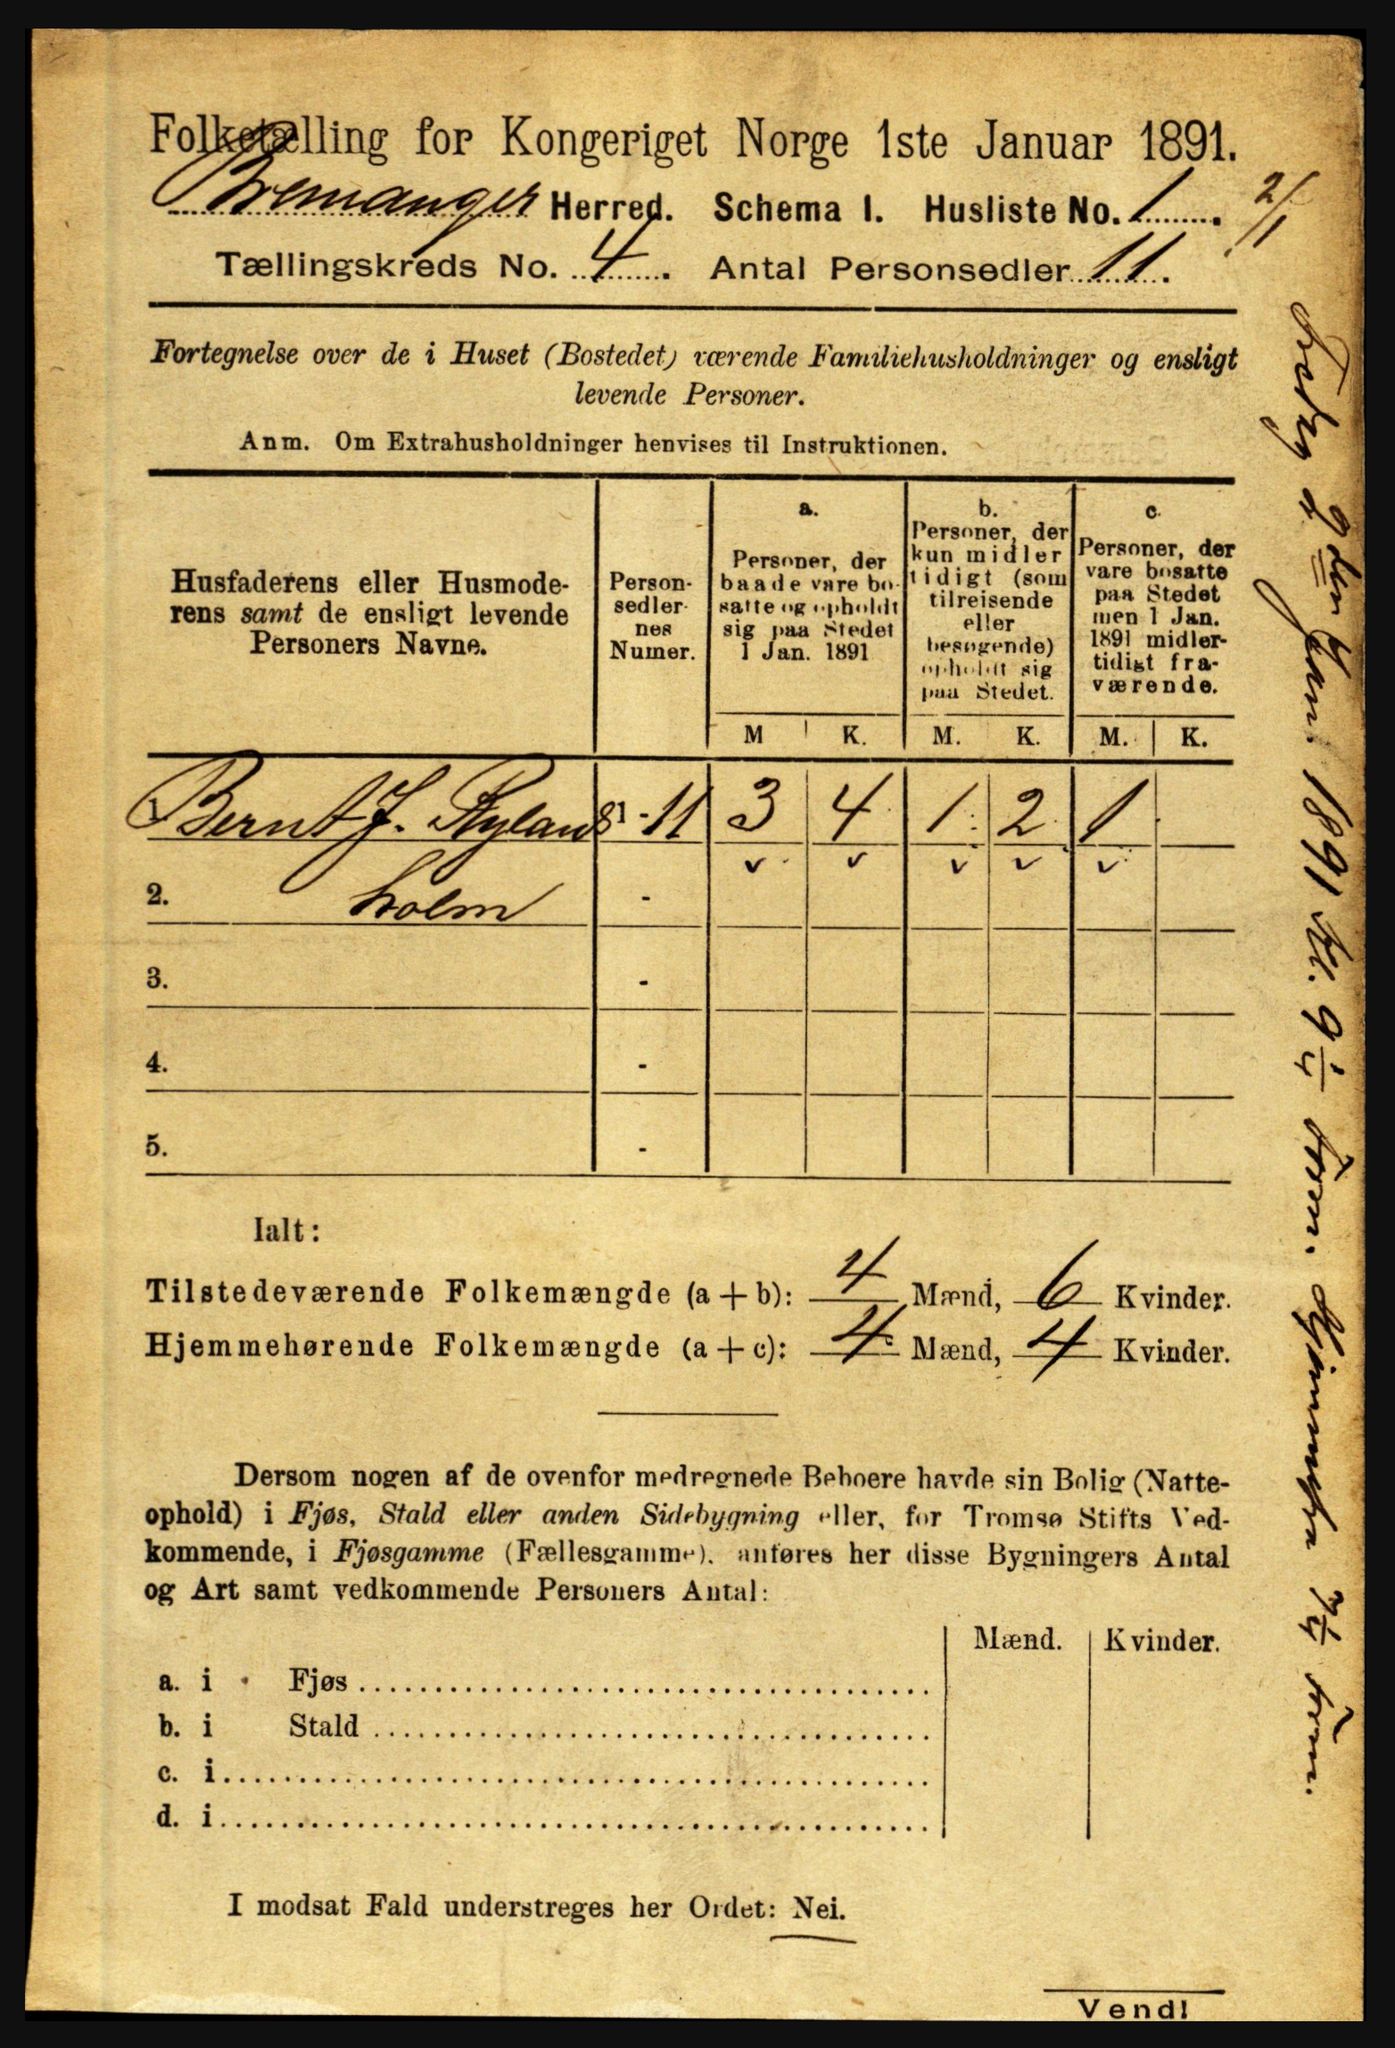 Folketælling for Kongeriget Norge 1ste Januar 1891.
Bremanger Herred. Schema I. Husliste No. 1. 2/1
Tællingskreds No. 4. Antal Personsedler 11.
Fortegnelse over de i Huset (Bostedet) værende Familiehusholdninger og ensligt
levende Personer.
Anm. Om Extrahusholdninger henvises til Instruktionen.
Husfaderens eller Husmode-
rens samt de ensligt levende
Personers Navne.
Person-
sedler-
nes
Numer.
a.
Personer, der
baade vare bo-
satte og opholdt
sig paa Stedet
1 Jan. 1891
b.
Personer, der
kun midler
tidigt (som
tilreisende
eller
besøgende)
opholdt sig
paa Stedet.
c.
Personer, der
vare bosatte
paa Stedet
men 1 Jan.
1891 midler-
tidigt fra-
værende.
M K. M. K. M. K.
1. Bernt J. Ryland 1 - 11 3 4 1 2 1
2. holm -
3. -
4. -
5. -
Ialt:
Tilstedeværende Folkemængde (a + b): 4 Mænd, 6 Kvinder.
Hjemmehørende Folkemængde (a + c): 4 Mænd, 4 Kvinder.
Dersom nogen af de ovenfor medregnede Beboere havde sin Bolig (Natte-
ophold) i Fjøs, Stald eller anden Sidebygning eller, for Tromsø Stifts Ved-
kommende, i Fjøsgamme (Fællesgamme), anføres her disse Bygningers Antal
og Art samt vedkommende Personers Antal:
Mænd. Kvinder.
a. i Fjøs
b. i Stald
c. i
d. i
I modsat Fald understreges her Ordet: Nei.
Vend!
2den Jan. 1891 kl. 9 1/4 Form. Hjemmefra 7 1/4 Form.